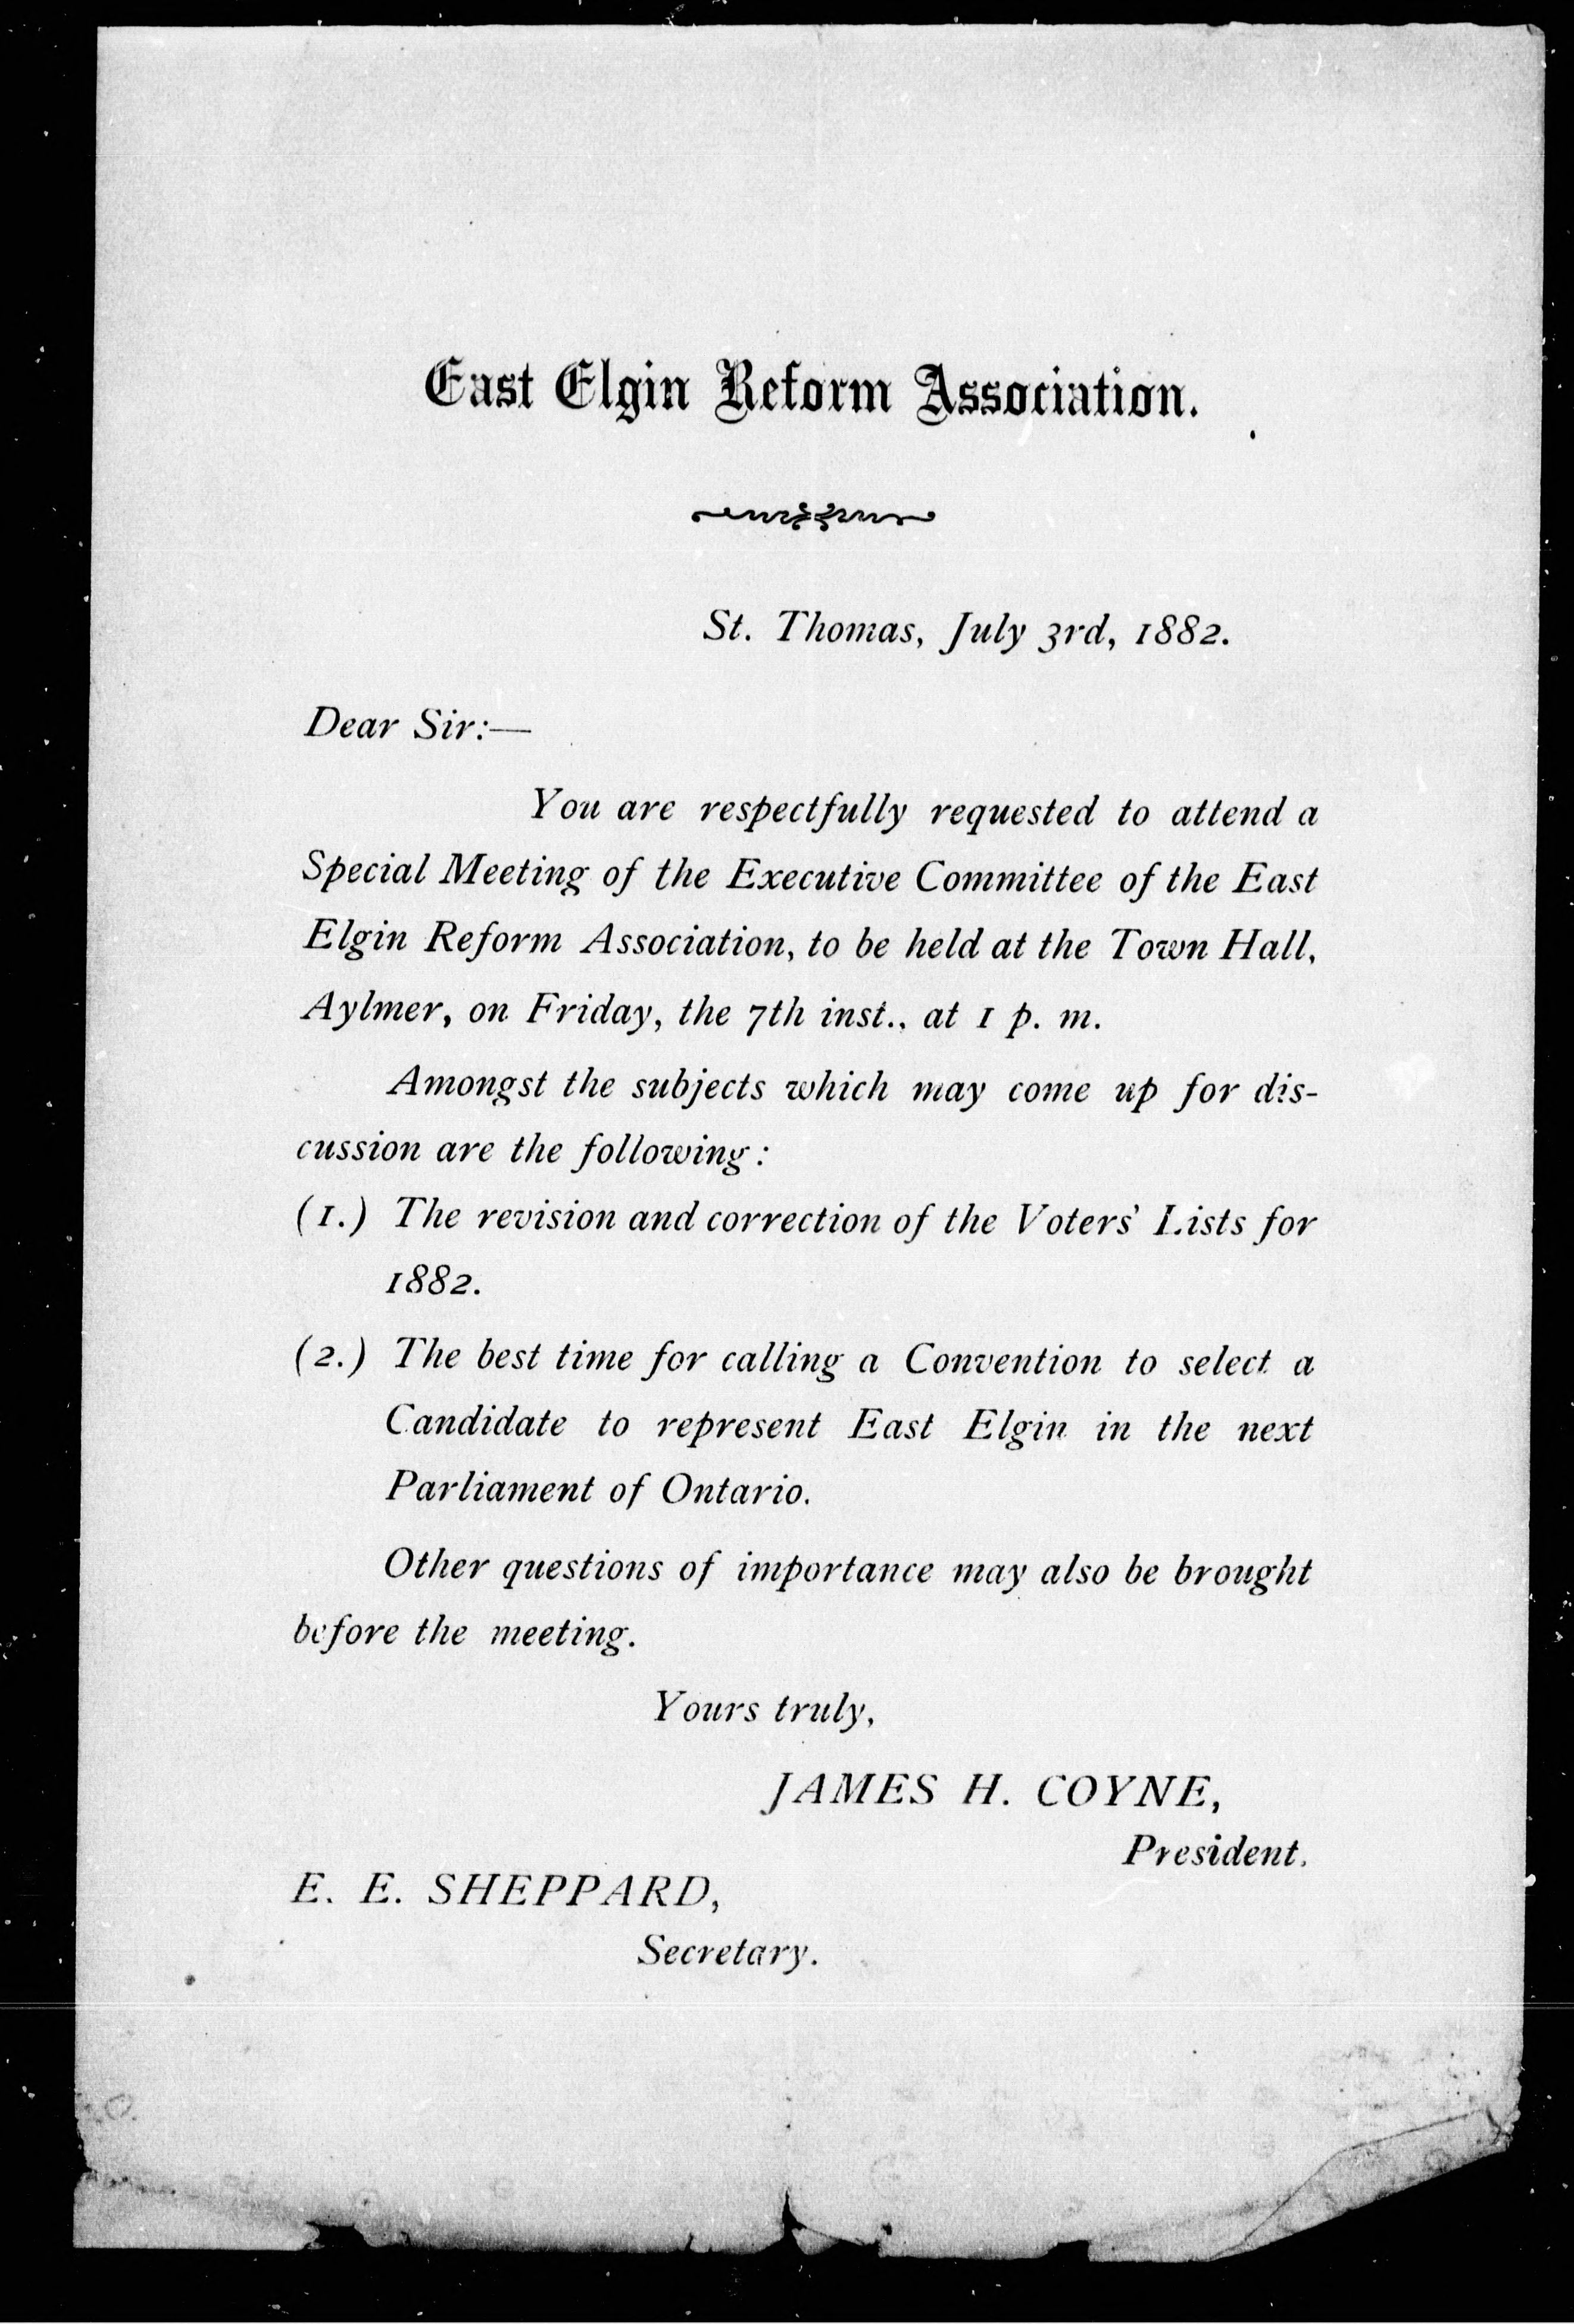 East Elgin Reform Association.
St. Thomas, July 3rd, 1882.
Dear Sir:—
You are respectfully requested to attend a
Special Meeting of the Executive Committee of the East
Elgin Reform Association, to be held at the Town Hall,
Aylmer, on Friday, the 7th inst., at 1 p. m.
Amongst the subjects which may come up for dis-
cussion are the following:
(1.) The revision and correction of the Voters' Lists for
1882.
(2.) The best time for calling a Convention to select a
Candidate to represent East Elgin in the next
Parliament of Ontario.
Other questions of importance may also be brought
before the meeting.
Yours truly,
JAMES H. COYNE,
President.
E. E. SHEPPARD,
Secretary.